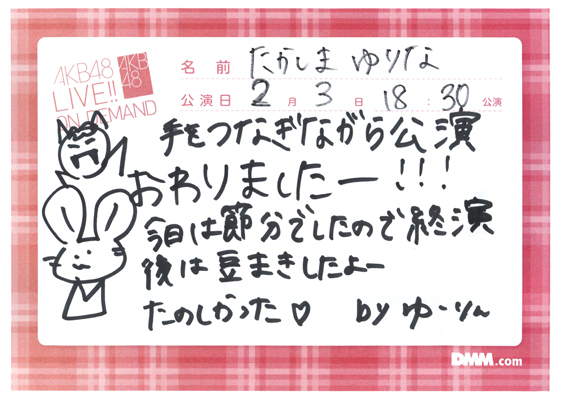 AKB48
LIVE!!
ON DEMAND
AKB
48
名前 たかしま ゆりな
公演日 2月3日 18:30公演
手をつなぎながら公演
おわりましたー!!!
今日は節分でしたので終演
後は豆まきしたよー
たのしかった♡ by ゆーりん
DMM.com